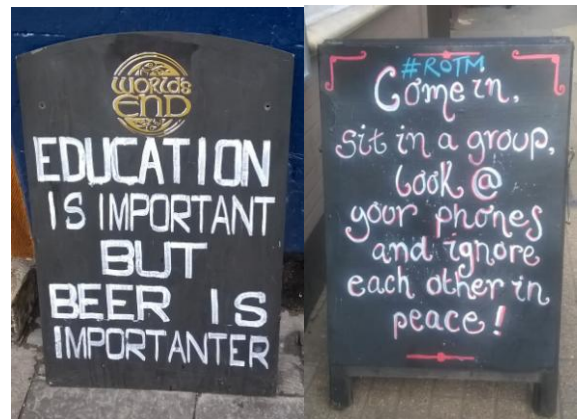 WORLD'S
END
EDUCATION
IS IMPORTANT
BUT
BEER IS
IMPORTANTER
#ROTM
Come in,
sit in a group,
look @
your phones
and ignore
each other in
peace!